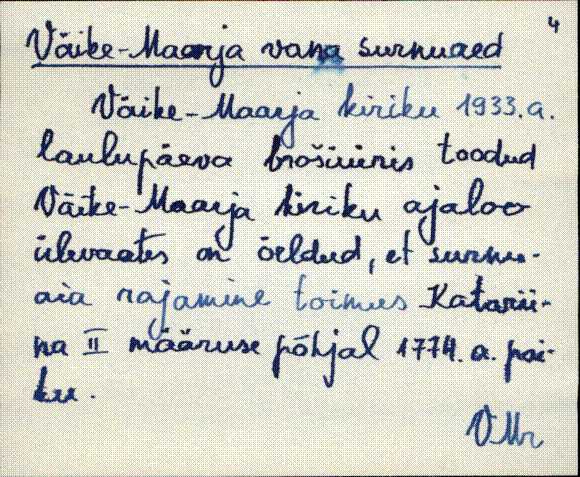 4
Väike-Maarja vana surnuaed
Väike-Maarja kiriku 1933.a.
laulupäeva brošüüris toodud
Väike-Maarja kiriku ajaloo
ülevaates on öeldud, et surnu-
aia rajamine toimus Katarii-
na II määruse põhjal 1774. a. pai-
ku.
VMr